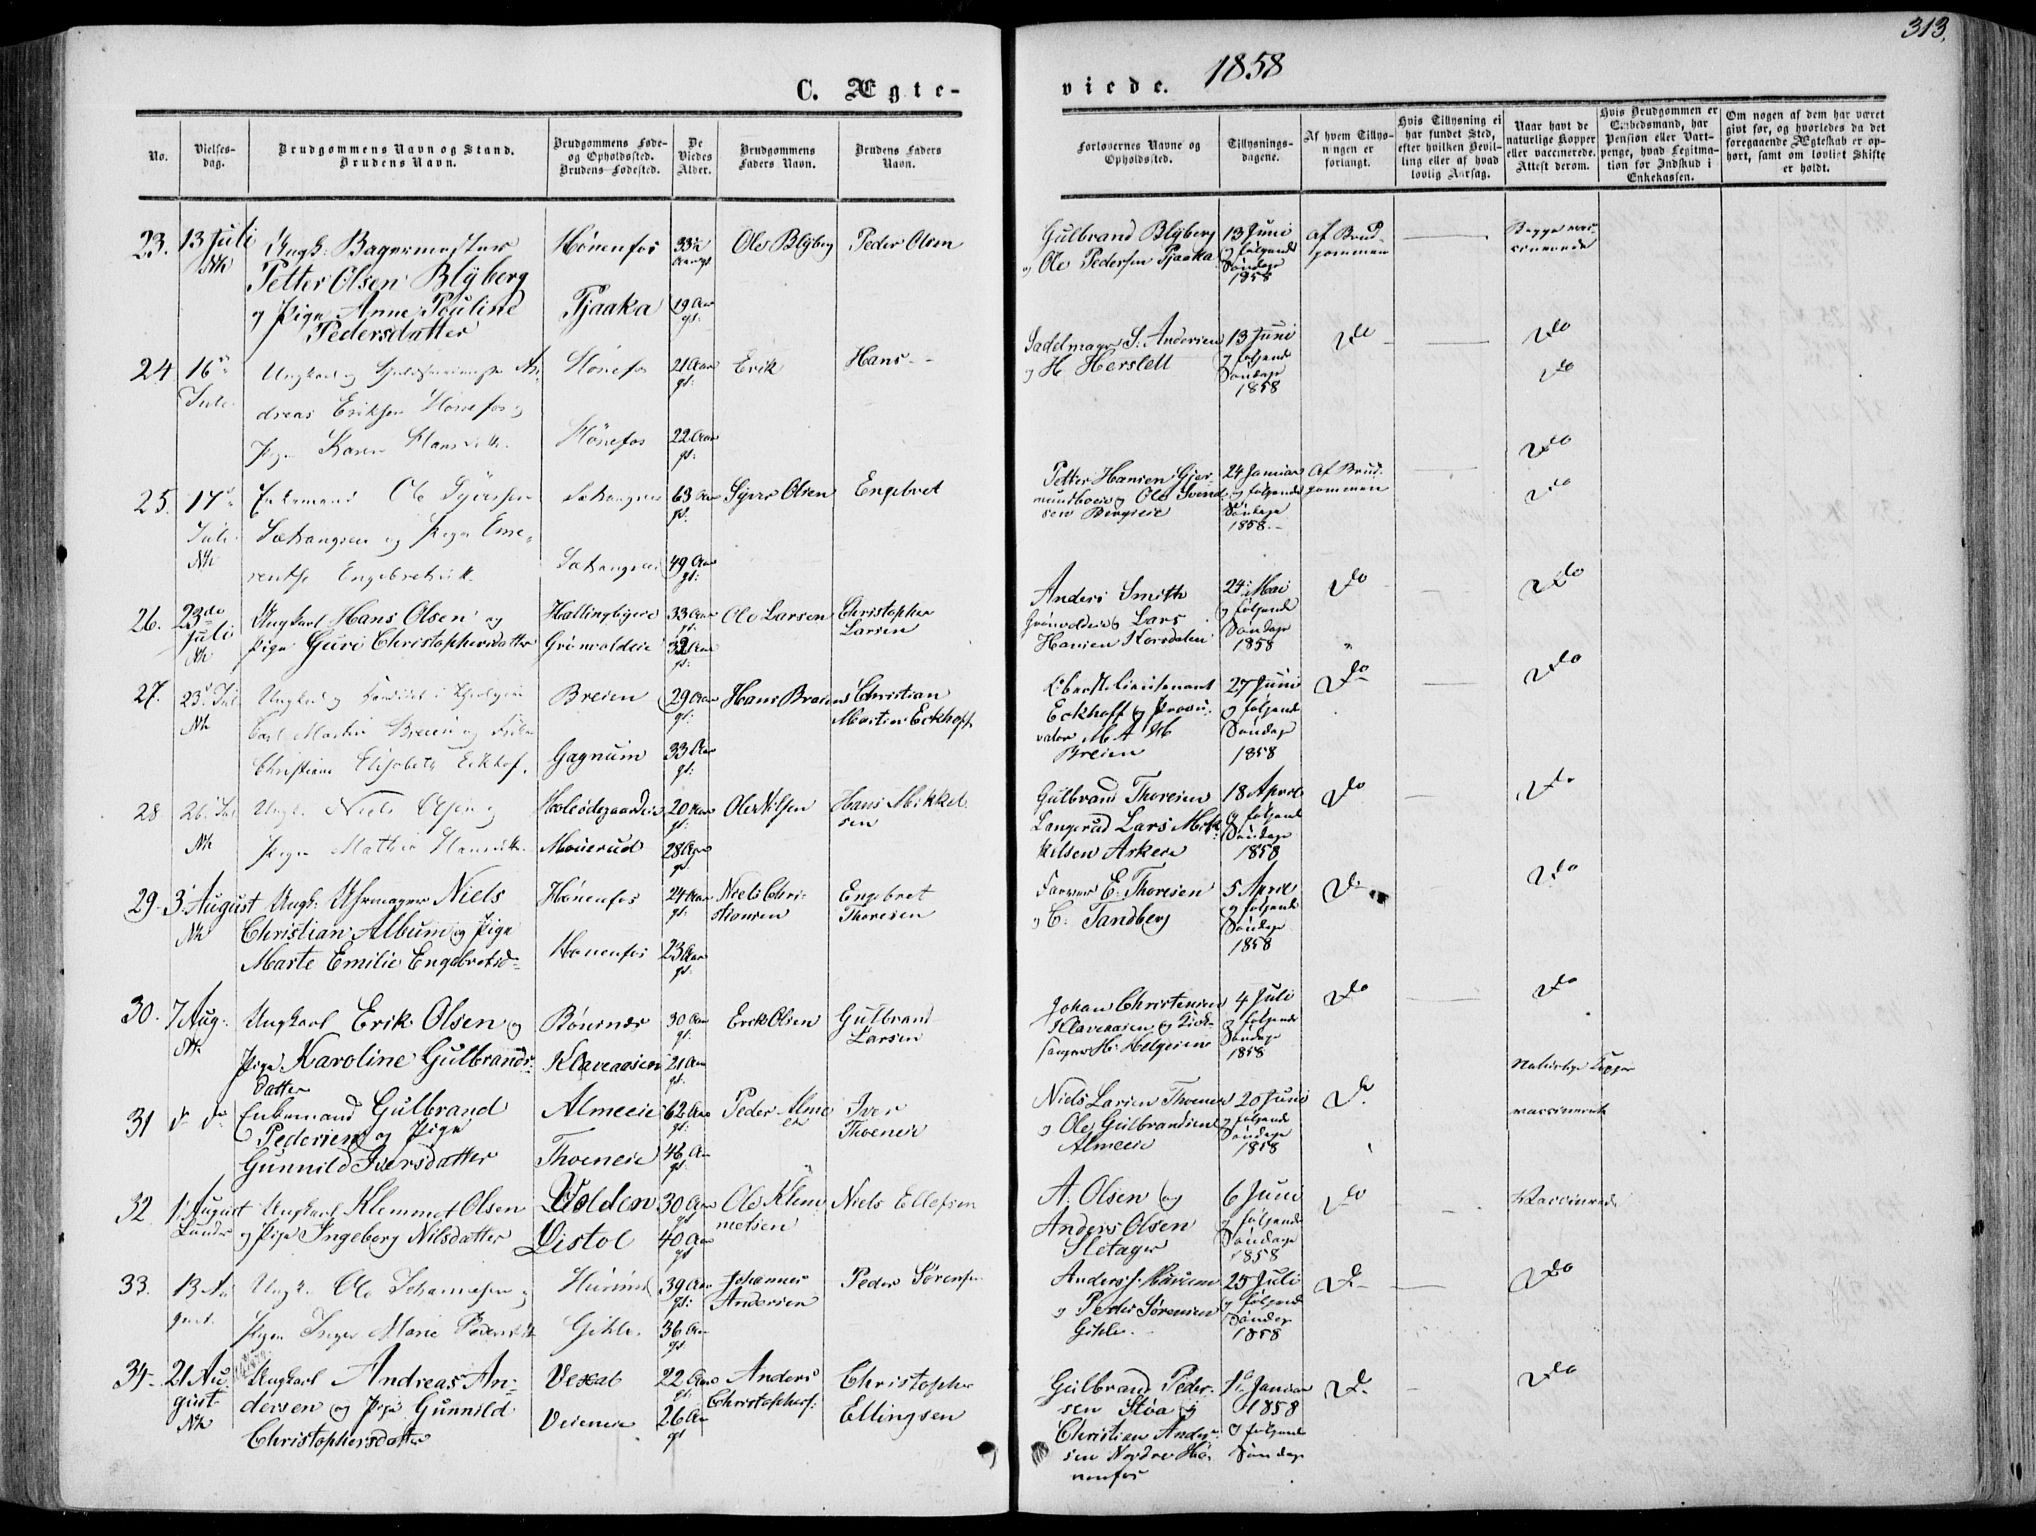 313.
1858
C. Ægte-
viede.
No.
Vielses-
dag.
Brudgommens Navn og Stand.
Brudens Navn.
Brudgommens Føde-
og Opholdssted.
Brudens Fødested.
De
Viedes
Alder.
Brudgommens
Faders Navn.
Brudens Faders
Navn.
Forlovernes Navne og
Opholdssted.
Tillysnings-
dagene.
Af hvem Tillys-
ningen er
forlangt.
Hvis Tillysning ei
har fundet Sted,
efter hvilken Bevil-
ling eller af hvad
lovlig Aarsag.
Naar havt de
naturlige Kopper
eller vaccinerede.
Attest derom.
Hvis Brudgommen er
Embedsmand, har
Pension eller Vart-
penge, hvad Legitima-
tion for Indskud i
Enkekassen.
Om nogen af dem har været
givt før, og hvorledes da det
foregaaende Ægteskab er op-
hørt, samt om lovligt Skifte
er holdt.
23. 13 Juli Ungk: Bagermester Hönenfos 33½ Ole Blÿberg Peder Olsen
Nk Petter Olsen Blÿberg
og Pige Anne Pouline Tjaaka 19 Aar
Pedersdatter gl:
Gulbrand Blÿberg 13 Juni Af Brud- Begge vac-
og Ole Pedersen Tjaaka og følgende gommen cinerede
Søndage
1858
24 16 Ungkarl og An- Hönefos 21 Aar Erik Hans
Juli dreas Eriksen Hönefos og gl:
Pige Karen Hansdtt. Hönefos 22 Aar
gl:
Sadelmager S. Andersen 13 Juni Do Do
og H Herslett og følgende Do
Søndage
1858
25. 17 Enkemand Ole Syversen 63 Aar Syver Olsen Engebret
Juli og Pige Eme- gl:
Nk rentse Engebretsdtt. 49 Aar
gl:
Petter Hansen Gjer- 24 Januar Af Brud- Do
mundboeie og Ole Svend- og følgende gommen Do
sen Bergseie Søndage
1858.
26. 23de Ungkarl Hans Olsen og Hallingbyeie 33 Aar Ole Larsen Christopher
Juli Pige Guri Christophersdatter Grönvoldeie gl: Larsen
Nk 32 Aar
gl:
Anders Smith 24 Mai Do Do
Grönvoldeie og Lars og følgende
Hansen Korsdalen Søndage
1858
27. 23 Juli Ungkarl og Kandidat i Theologien Breien 29 Aar Hans Breien Christian
Nk Carl Martin Breien og gl: Martin Eckhoff
Christiane Elisabeth Eckhof. Gagnum 33 Aar
gl:
Oberstlieutenant 27 Juni Do Do
Eckhoff og Procu- og følgende
rator M A H Søndage
Breien 1858
28 26 Juli Ungk. Niels Olsen og Holesdgaardeie 20 Aar Ole Nilsen Hans Mikkel-
Nk Pige Mathia Hansdtt. Mouerud gl: sen
28 Aar
gl:
Gulbrand Thoresen 18 April Do Do
Langerud Lars Mik- og følgende
kelsen Askeie Søndage
1858
29. 3 August Ungk: Uhrmager Niels Hönenfos 24 Aar Niels Chri- Engebret
Nk Christian Album og Pige gl: stiansen Thoresen
Marte Emilie Engebretsd- Hönenfos 23 Aar
gl:
Farver E. Thoresen 5 April Do Do
og C: Tandberg og følgende
Søndage
1858
30. 7 Aug: Ungkarl Erik Olsen og Bönsnæs 30 Aar Erik Olsen Gulbrand
Nk gl: Larsen
Pige Karoline Gulbrands- Klaveaasen 21 Aar
datter gl:
Johan Christensen 4 Juli Do Do
Klaveaasen og Kirk- og følgende
sanger H: Helgesen Søndage
1858
31 d d Enkemand Gulbrand Almeeie 62 Aar Peder Alme- Iver
Pedersen og Pige gl: eie Thoeneie
Gunnild Iversdatter Thoeneie 46 Aar
gl:
Niels Larsen Thoeneie 20 Juni Do Naturlige Kopper
og Ole Gulbrandsen og følgende vaccinerede
Almeeie Søndage
1858
32 1 August Ungkarl Klemmet Olsen Volden 30 Aar Ole Klem- Niels Ellefsen
Lunder og Pige Ingeborg Nilsdatter gl: metsen
Listol 40 Aar
gl:
A: Olsen og 6 Juni Do Vaccinerede
Anders Olsen og følgende
Sletager Søndage
1858
33. 13 Au- Ungk. Ole Johannesen og 39 Aar Johannes Peder Sørensen
gust. Pigen Inger Marie Pedersdtt Gihle. gl: Andersen
36 Aar
gl:
Anders J. 25 Juli Do Do
og Peder Sørensen og følgende
Gihle. Søndage
1858
34- 21 Au- Ungkarl Andreas An- Vexal 22 Aar Anders Christopher
gust dersen og Pige Gunnild gl: Christophers: Ellingsen
Nk Christophersdatter Veieneie 26 Aar
gl:
Gulbrand Peder- 1 Januar Do Do
sen Stöa og 1858
Christian Ander- og følgende
sen Nordre Hö- Søndage
nenfos